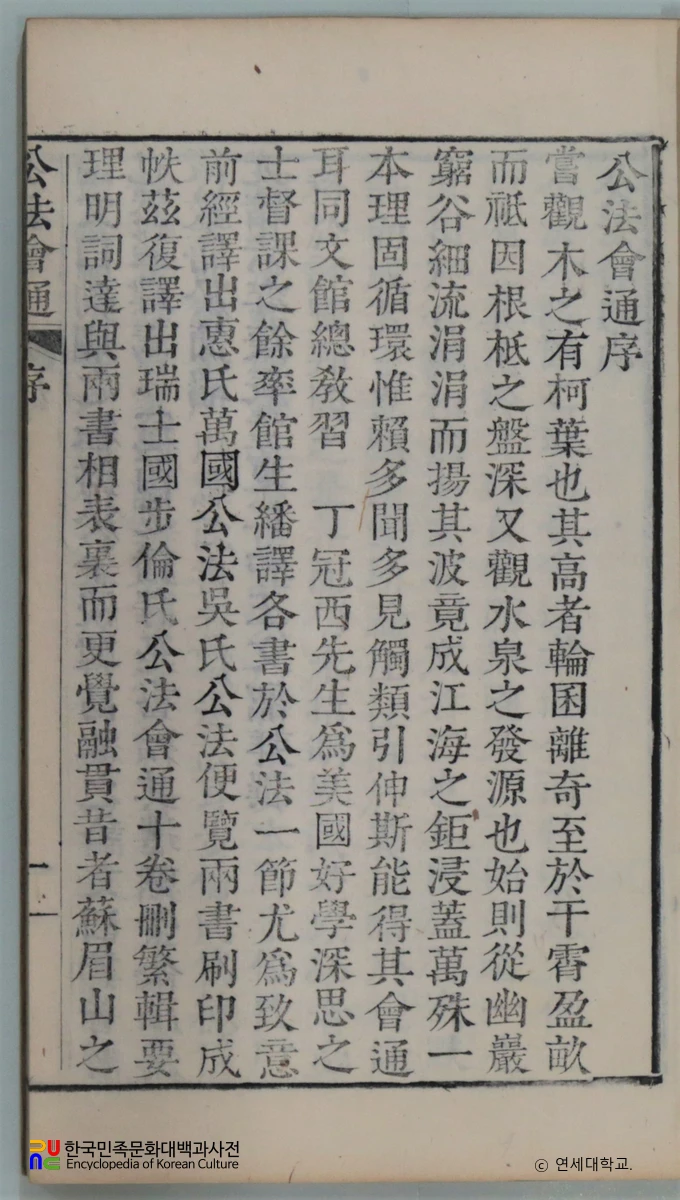 公法會通序
嘗觀木之有柯葉也其高者輪囷離奇至於干霄盈畝
而祗因根柢之盤深又觀水泉之發源也始則從幽巖
窮谷細流涓涓而揚其波竟成江海之鉅浸蓋萬殊一
本理固循環惟賴多聞多見觸類引伸斯能得其會通
耳同文館總敎習 丁冠西先生爲美國好學深思之
士督課之餘率館生繙譯各書於公法一節尤爲致意
前經譯出惠氏萬國公法吳氏公法便覽兩書刷印成
帙茲復譯出瑞士國步倫氏公法會通十卷刪繁輯要
理明詞達與兩書相表裏而更覺融貫昔者蘇眉山之
公法會通 序 一
한국민족문화대백과사전
Encyclopedia of Korean Culture
ⓒ 연세대학교.